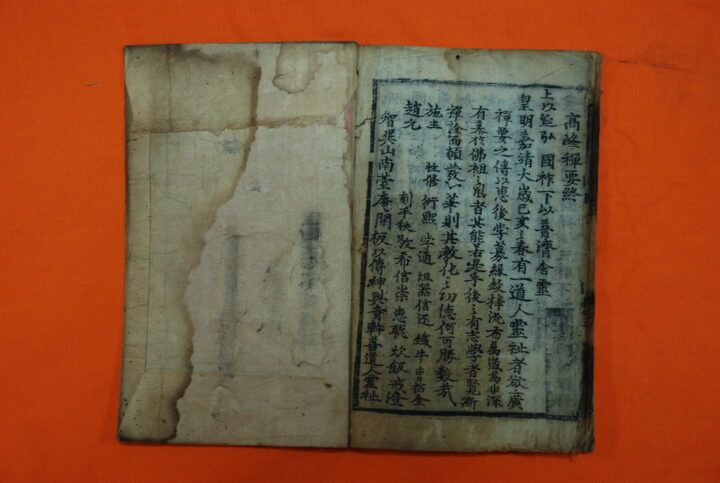 高峰禪要終
上以延弘 國祚下以普濟含靈
皇明嘉靖大歲己亥之春有一道人靈祉者欲廣
禪要之傳以惠後学募緣鋟梓流布萬歲為非深
有春於佛祖之風者其能若是乎後之有志學者覧斯
禪詮而頓發心華則其敎化之功德何可勝數哉
施主 性修 術熙 学通 祖 信還 鐵牛
趙元 刻手秩 敬希 信崇 惠聡 炊飯戒澄
智異山南臺庵開板以傳神興寺幹善道人靈祉